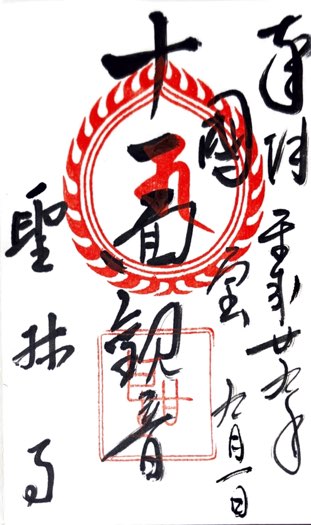 奉拝 平成廿九年
九月一日
國宝
十一面観音
聖林寺